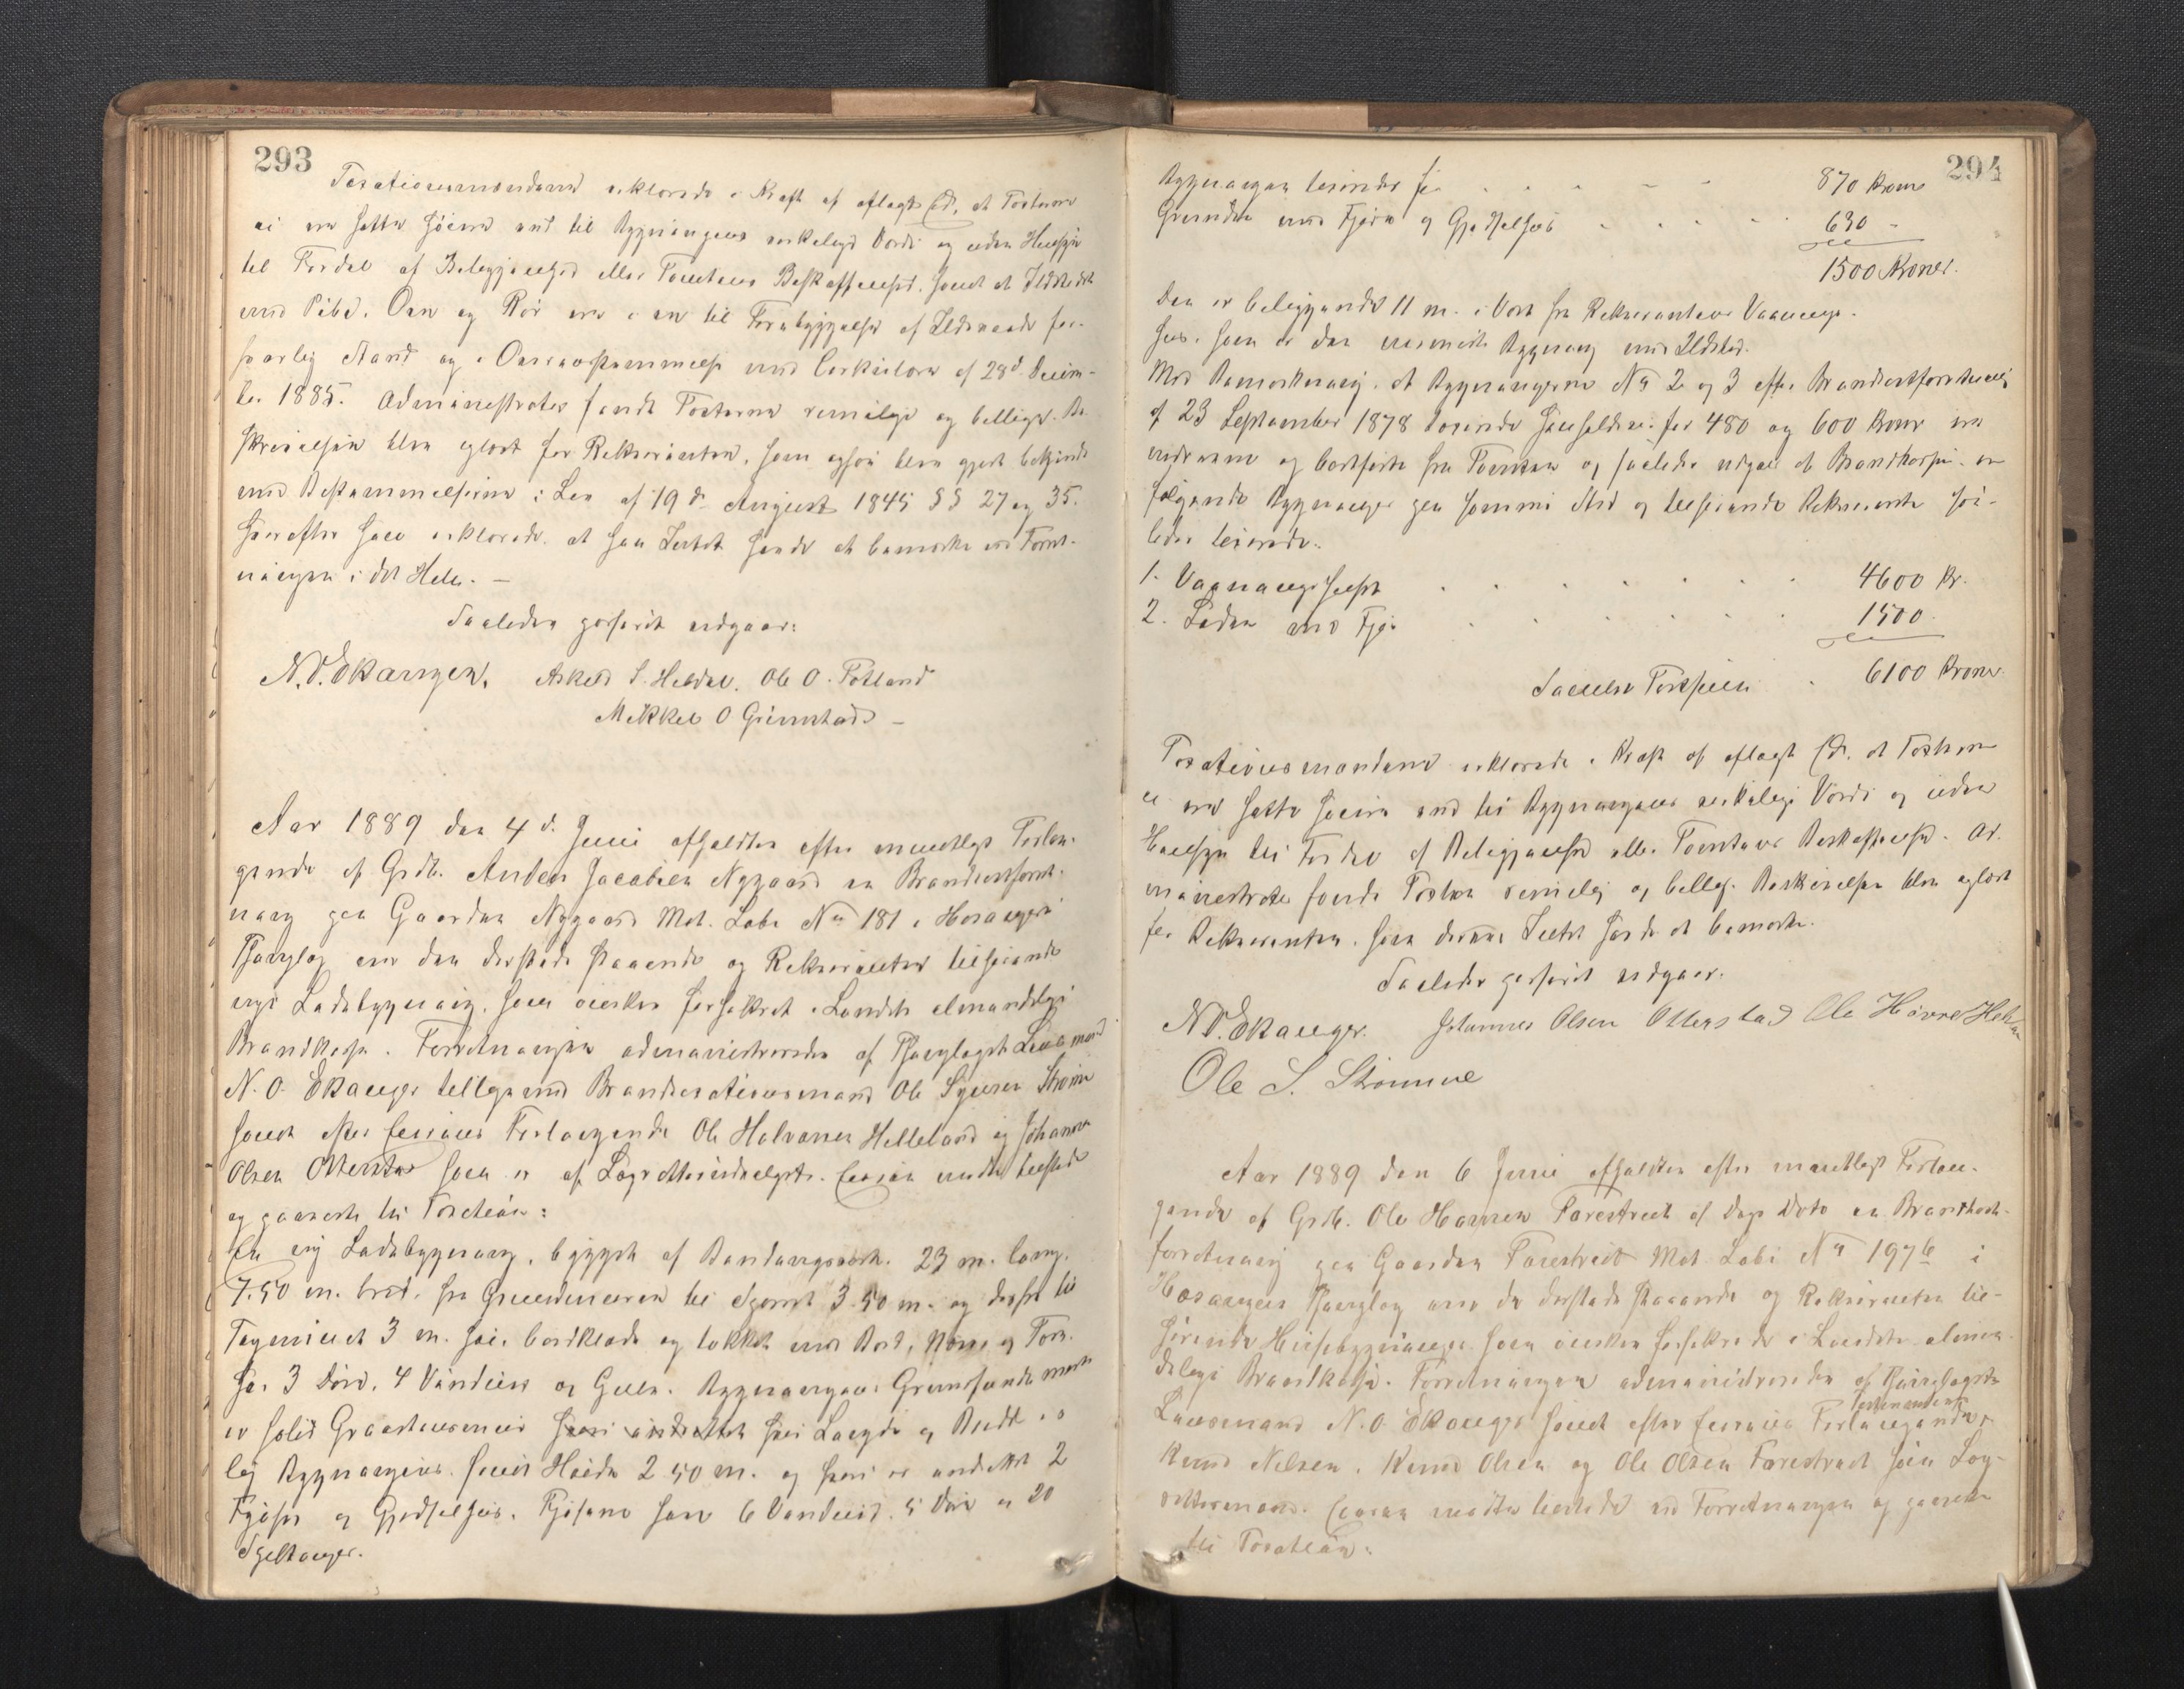 293
Taxationsmændene erklærede i Kraft af aflagt Ed, at Taxterne
ei ere satte høiere end til Bygningens virkelige Værdi og uden Hensyn
til Fordel af Beliggenhed eller Tomtens Beskaffenhed, samt at Ildstedet
med Pibe, Ovn og Rør ere i en til Forebyggelse af Ildsvaade for-
svarlig Stand og i Overensstemmelse med Cirkulære af 28d Decem-
ber 1885. Administrator fandt Taxterne rimelige og billige. Be-
skrivelsen blev oplæst for Rekvirenten, som ogsaa blev gjort bekjendt
med Bestemmelserne i Lov af 19de August 1845 §§ 27 og 35.
Herefter han erklærede at han Intet havde at bemærke ved Forret-
ningen i det Hele. —
Saaledes passeret udgaar:
N. O. Ekanger. Askild S. Heldal. Ole O. Fotland
Mikkel O Grimstad —
Aar 1889 den 4 d. Juni afholdtes efter mundtligt Forlan-
gende af Grdb. Anders Jacobsen Nygaard en Brandtaxtforret-
ning paa Gaarden Nygaard Mat. Løbe No 181 i Hosangers
Thinglag over den dersteds staaende og Rekvirenten tilhørende
nye Ladebygning, som ønskes forsikret i Landets almindelige
Brandkasse. Forretningen administreredes af Thinglagets Lensmand
N. O. Ekanger tilligemed Brandtaxationsmand Ole Sjursen Strømme
samt efter Eierens Forlangende Ole Halvorsen Helleland og Johannes
Olsen Otterstad som er af Lagretteudvalget. Eieren mødte tilstede
og passerede til Taxation:
En ny Ladebygning, bygget af Bindingsværk. 23 m. lang.
7.50 m. bred, fra Grundmuren til Spærret 3.50 m. og derfra til
Tagmønet 3 m. høi, bordklædt og tækket med Bord, Næver og Torv.
har 3 Døre, 4 Vinduer og Gulv. Bygningens Grundfundament
er solid Graastensmuur hvori indrettet hvis Længde og Bredde er
lig Bygningens. Muurs Høide 2.50 m. og hvori er indrettet 2
Fjøser og Gjødselhus. Fjøsene have 6 Vinduer, 5 Døre og 20
Spiltauger.
294
Bygningen taxeredes for 870 Kroner
Grunden med Fjøse og Gjødselhus 630 "
1500 Kroner.
Den er beliggende 11 m. i Vest fra Rekvirentens Vaanings-
hus. som er den nærmeste Bygning med Ildsted.
Med Bemærkning, at Bygningerne No 2 og 3 efter Brandtaxtforretning
af 23 September 1878 taxerede henholdsvis for 480 og 600 Kroner ere
nedrevne og bortførte fra Tomten og saaledes udgaar af Brandkassen. ere
følgende Bygninger paa samme Sted og tilhørende Rekvirenten saa-
ledes taxerede:
1. Vaaningshuset 4600 Kr.
2. Laden med Fjøs 1500.
Samlet Taxtsum 6100 Kroner.
Taxationsmændene erklærede i Kraft af aflagt Ed, at Taxterne
ei ere satte høiere end til Bygningens virkelige Værdi og uden
Hensyn til Fordel af Beliggenhed eller Tomtens Beskaffenhed. Ad-
ministrator fandt Taxten rimelig og billig. Beskrivelsen blev oplæst
for Rekvirenten, som derved Intet havde at bemærke.
Saaledes passeret udgaar.
N. O. Ekanger. Johannes Olsen Otterstad Ole H
Ole S. Strømme
Aar 1889 den 6 Juni afholdtes efter mundtligt Forlan-
gende af Grdb. Ole Hansen Farestveit af Dags Dato en Brandtaxt-
forretning paa Gaarden Farestveit Mat. Løbe No 197b i
Hosangers Thinglag over de dersteds staaende og Rekvirenten til-
hørende Husebygninger som ønskes forsikrede i Landets almin-
delige Brandkasse. Forretningen administreredes af Thinglagets
Lensmand N. O. Ekanger samt efter Eierens Forlangende
Knud Nilsen, Knud Olsen og Ole Olsen Farestveit som Lag-
rettesmænd. Eieren mødte tilstede ved Forretningen og passerede
til Taxation: